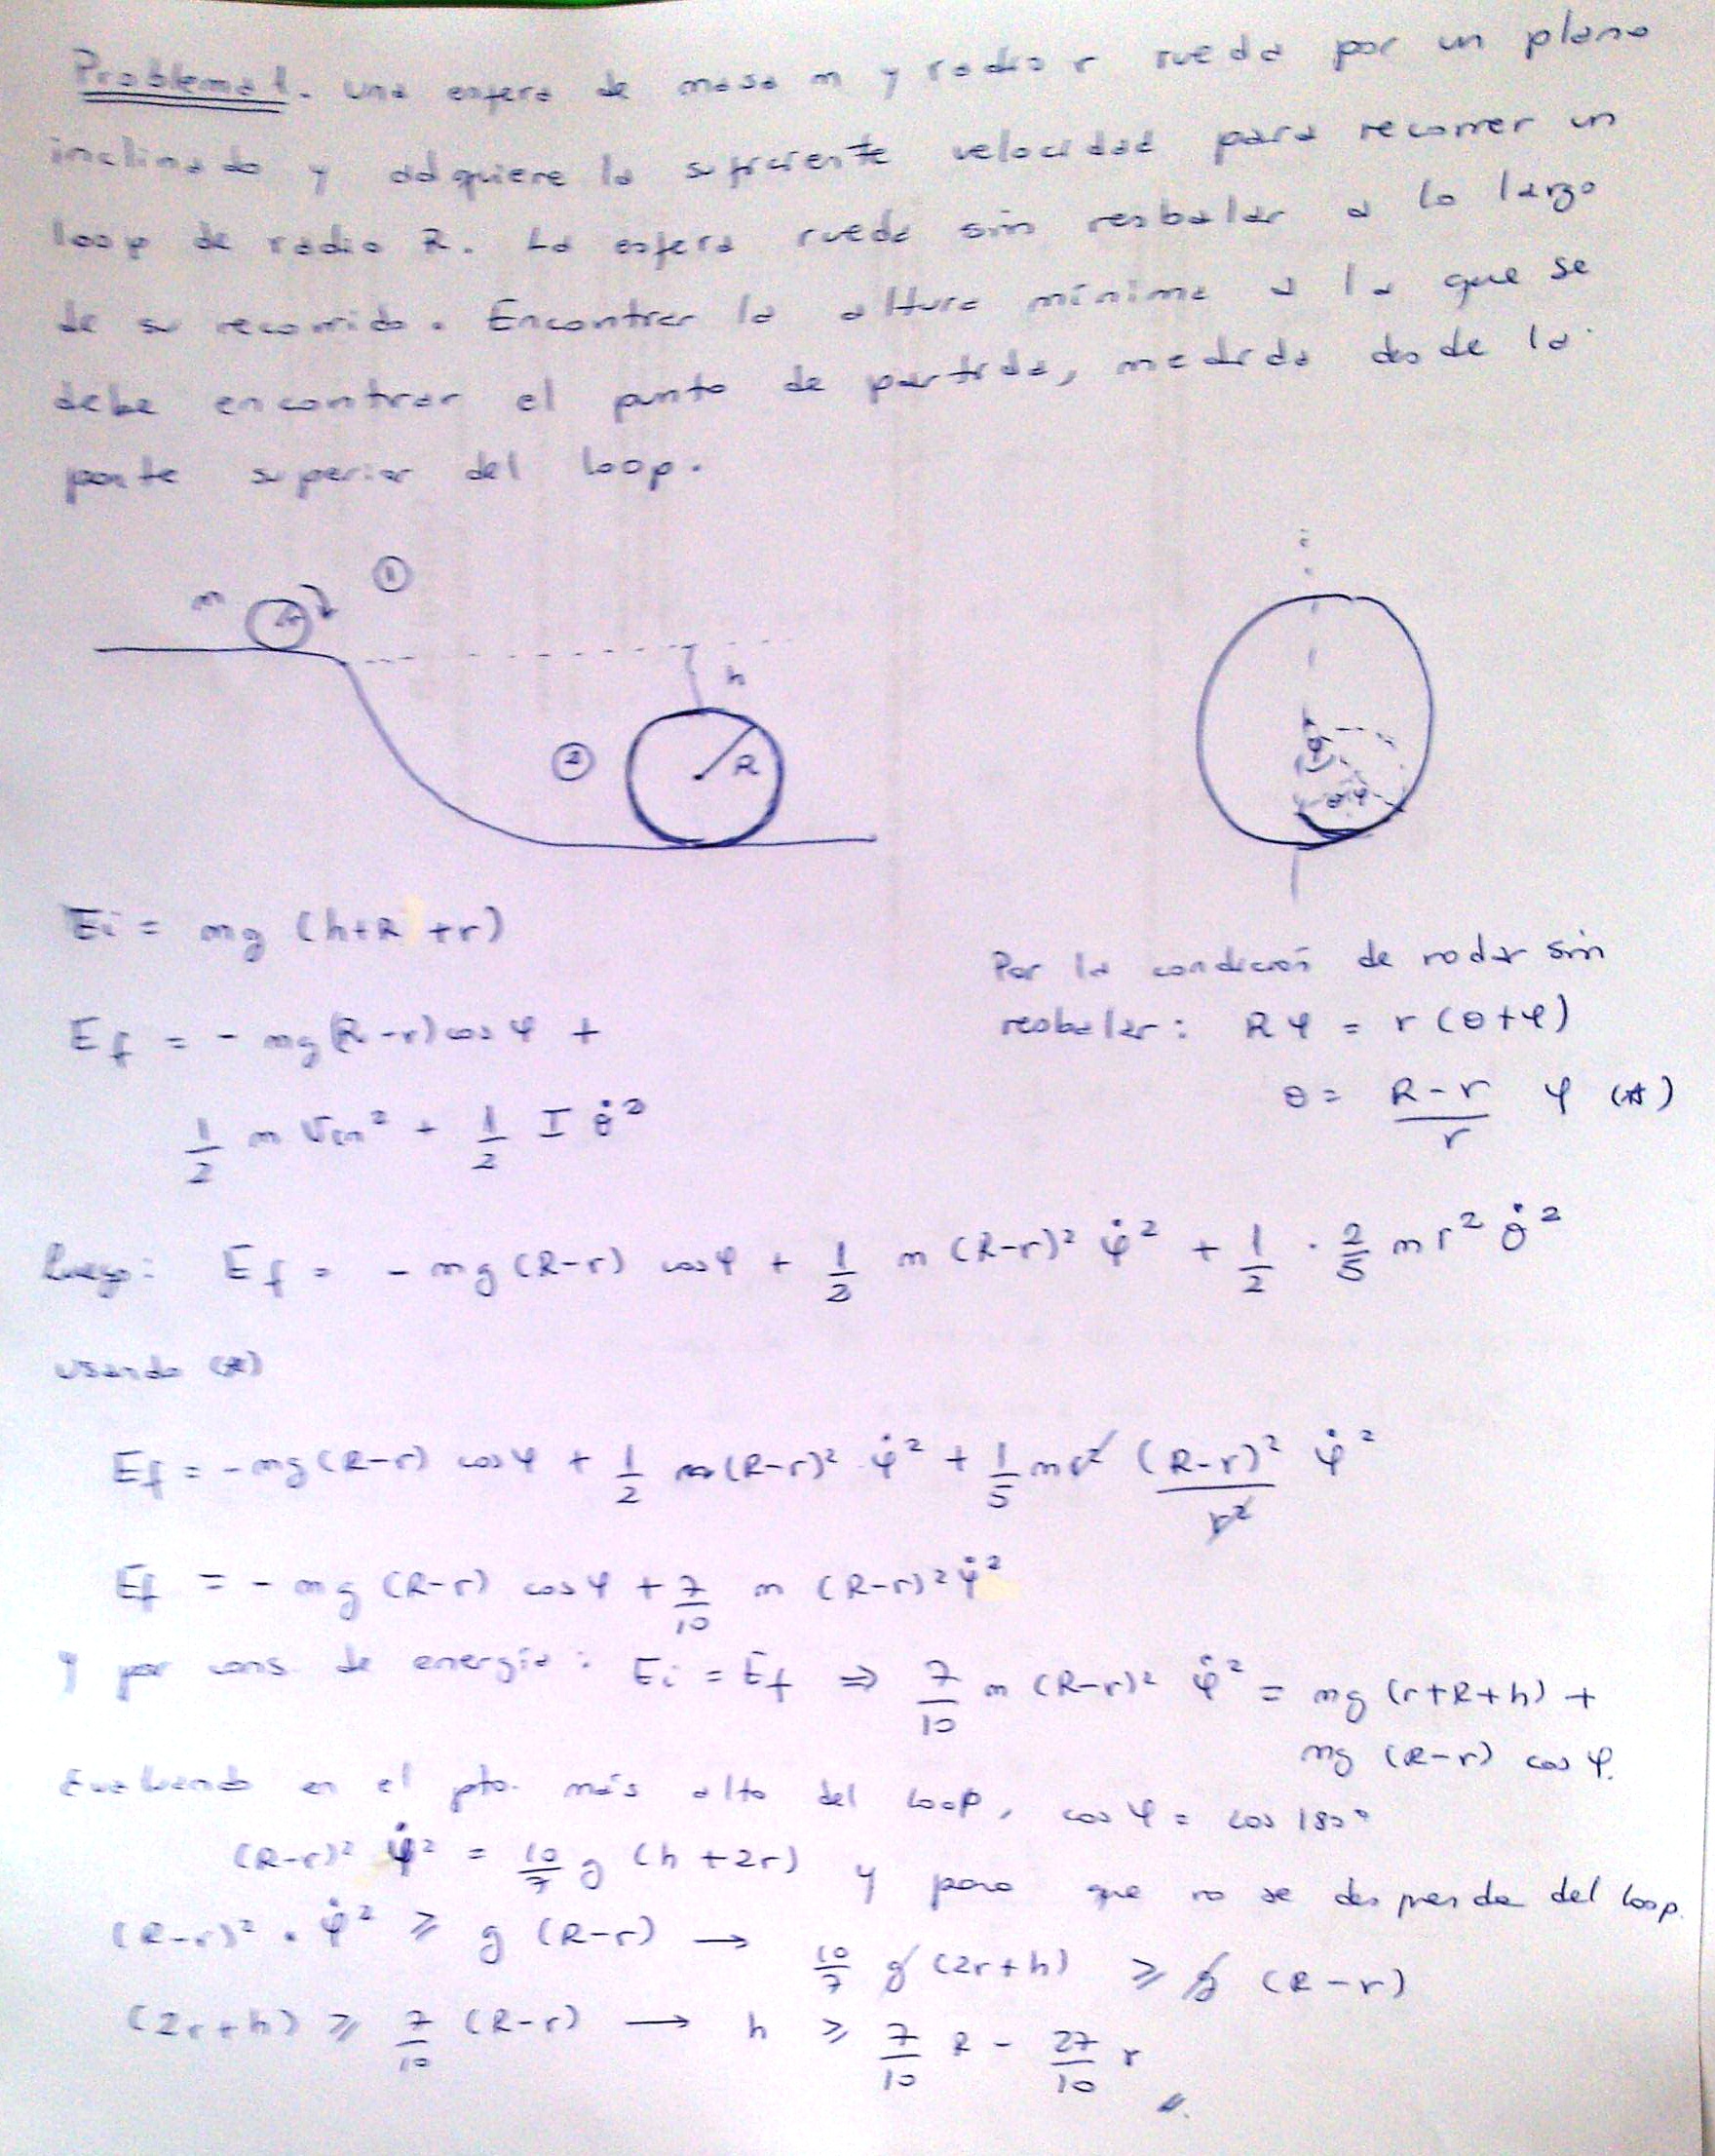 Problema 1. una esfera de masa m y radio r rueda por un plano
inclinado y adquiere la suficiente velocidad para recorrer un
loop de radio R. La esfera rueda sin resbalar a lo largo
de su recorrido. Encontrar la altura mínima a la que se
debe encontrar el punto de partida, medida desde la
parte superior del loop.
m r ①
h
② R
φ
θ φ
Ei = mg (h+R+r)
Ef = - mg(R-r) cos φ +
1/2 m Vcm² + 1/2 I θ̇²
Por la condición de rodar sin
resbalar: Rφ = r(θ+φ)
θ = (R-r)/r φ (*)
luego: Ef = - mg (R-r) cos φ + 1/2 m (R-r)² φ̇² + 1/2 · 2/5 m r² θ̇²
usando (*)
Ef = - mg (R-r) cos φ + 1/2 m (R-r)² φ̇² + 1/5 m r² (R-r)²/r² φ̇²
Ef = - mg (R-r) cos φ + 7/10 m (R-r)² φ̇²
y por cons. de energía: Ei = Ef ⇒ 7/10 m (R-r)² φ̇² = mg (r+R+h) +
mg (R-r) cos φ.
Evaluando en el pto. más alto del loop, cos φ = cos 180°
(R-r)² φ̇² = 10/7 g (h + 2r) y para que no se desprenda del loop.
(R-r)² · φ̇² ≥ g (R-r) → 10/7 g (2r+h) ≥ g (R-r)
(2r+h) ≥ 7/10 (R-r) → h ≥ 7/10 R - 27/10 r